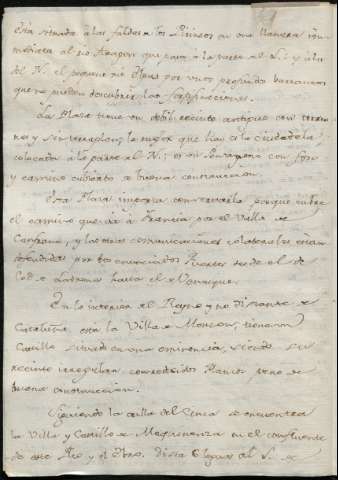 Esta situada á las faldas de los Pirineos en una llanura inmediata al rio Aragon que pasa á la parte del S. y á la
del N. el pequeño rio por unos profundos barrancos
que no pueden descubrir las fortificaciones.
La Plaza tiene un debil recinto antiguo con
y sin terraplen; la mejor que hai es la ciudadela,
colocada á la parte del N.; es un Pentagono con foso
y camino cubierto de buena construccion.
Esta Plaza importa conservarla porque cubre
el camino que vá á Francia por el Valle de
Canfranc, y las otras comunicaciones colaterales estan
defendidas por los enunciados Puertos desde el de
hasta el
En lo interior del Reyno y no distante de
Cataluña esta la Villa de Monzon; tiene un
Castillo situado en una eminencia, siendo su
recinto irregular con reducidos flancos pero de
buena construccion.
Siguiendo la orilla del Cinca se encuentra
la Villa y Castillo de Mequinenza en el confluente
de este Rio y el Ebro. Dista 6 leguas al S. de